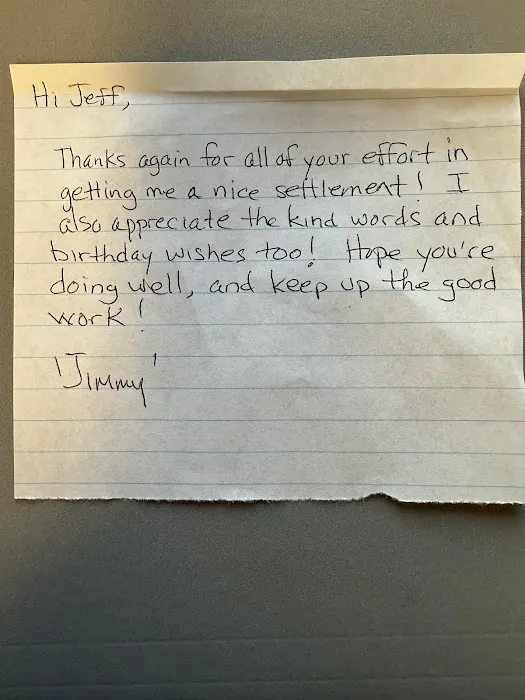 Hi Jeff,
Thanks again for all of your effort in
getting me a nice settlement! I
also appreciate the kind words and
birthday wishes too! Hope you're
doing well, and keep up the good
work!
'Jimmy'